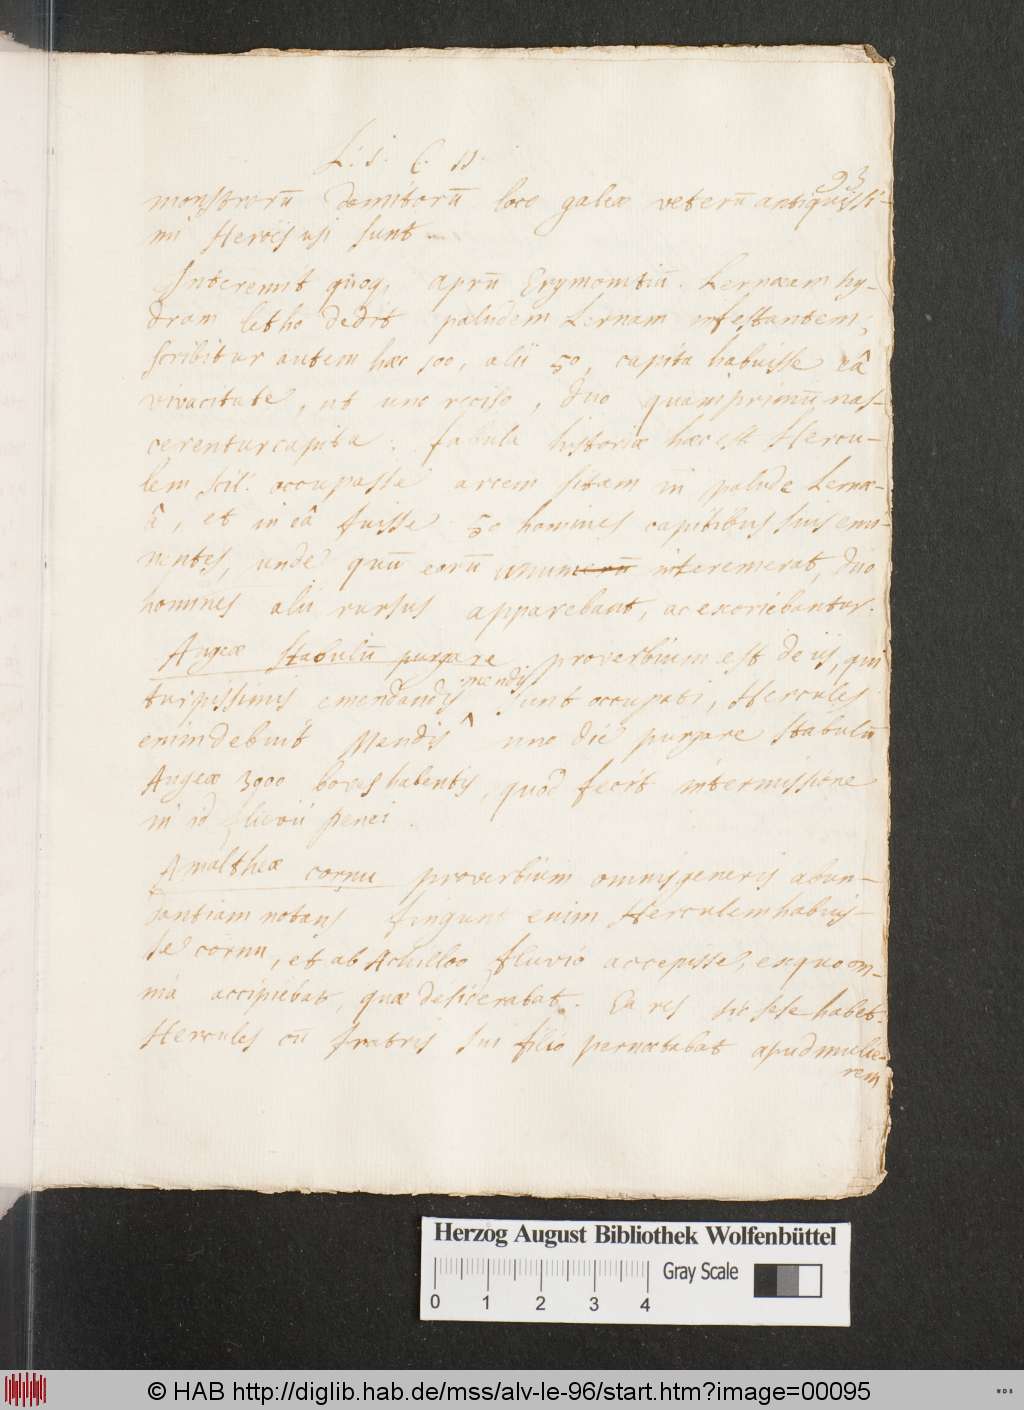 L. j. C. 11.
93
monstrorū domitorū loco galeæ veterū antiquissi-
mi Heroes usi sunt
Interemit quoq, aprū Erymontiū. Lernæam hy-
dram letho dedit paludem Lernam infestantem;
scribitur autem hæc 100, alii 50, capita habuisse eâ
vivacitate, ut uno reciso, duo quamprimū nas-
cerentur capita. fabula historiæ hæc est Hercu-
lem scil. occupasse arcem sitam in palude Lernæ-
â, et in eâ fuisse 50 homines capitibus suis emi-
nentes, unde quū eorū interemerat, duo
homines alii rursus apparebant, ac exoriebantur.
Augeæ stabulū purgare proverbium est de iis, qui
turpissimis emendandis mendis sunt occupati, Hercules
enim debuit uno die purgare stabulū
Augeæ 3000 boves habentis, quod fecit intermissione
in id fluvii penei.
Amaltheæ cornu proverbium omnis generis abun-
dantiam notans fingunt enim Herculem habuis-
se cornu, et ab Achilloo fluvio accepisse, ex quo om-
nia accipiebat, quæ desiderabat. Ea res sic sese habet.
Hercules cū fratris sui filio pernoctabat apud mulie-
rem
Herzog August Bibliothek Wolfenbüttel
Gray Scale
0 1 2 3 4
© HAB http://diglib.hab.de/mss/alv-le-96/start.htm?image=00095